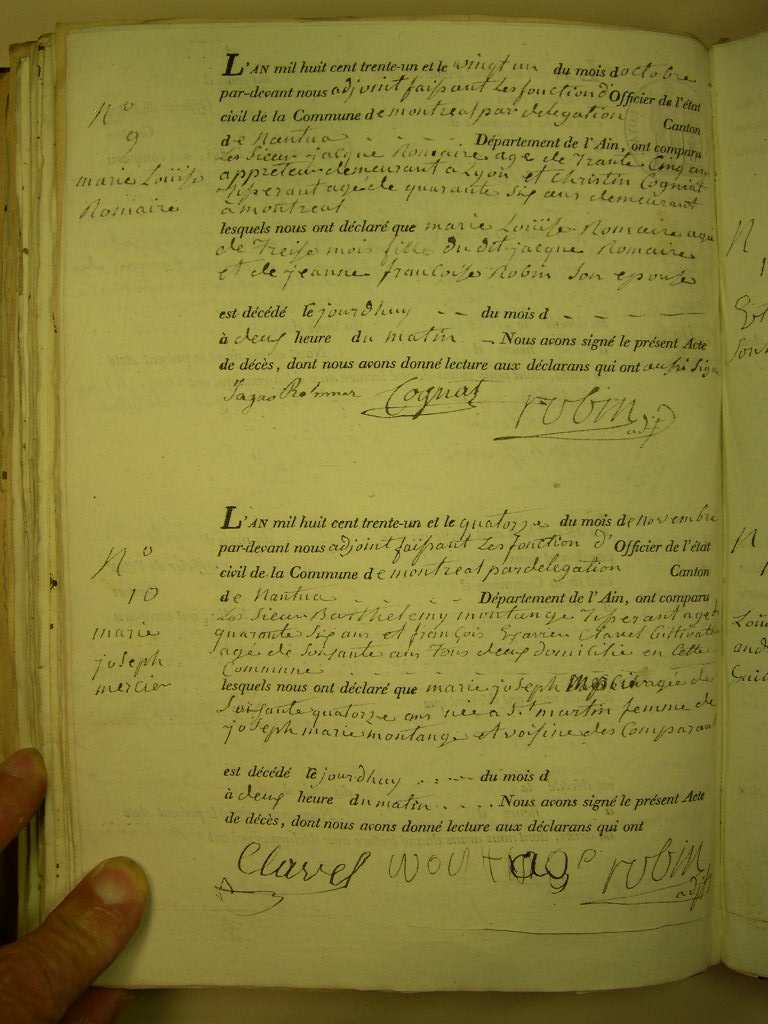 L'AN mil huit cent trente-un et le vingt un du mois d octobre
par-devant nous adjoint faissant Les fonction d' Officier de l'état
civil de la Commune de montreal par delegation
Canton
N° 9
de Nantua Département de l'Ain, ont comparu
Les Sieur jacque Romaire age de Trante Cinq ans
marie Loüise
appreteur demeurant a Lyon et Christin Cogniat
Romaire
Tisserant age de quarante six ans demeurant
a montreal
lesquels nous ont déclaré que marie Loüise Romaire agee
de Treise mois fille du dit jacque Romaire
et de jeanne francoise Robin son epouse
est décédé le jourdhuy - - du mois d - - - -
à deux heure du matin - Nous avons signé le présent Acte
de décès, dont nous avons donné lecture aux déclarans qui ont aussi signe
Cognat robin adj
L'AN mil huit cent trente-un et le quatorze du mois de novembre
par-devant nous adjoint faissant Les fonction d' Officier de l'état
N° 10
civil de la Commune de montreal par delegation Canton
de Nantua Département de l'Ain, ont comparu
Les Sieur Barthelemy montange Tisserant age
marie
quarante six ans et françois Clavel Cultivateur
joseph
age de soixante ans Tous deux domicilié en Cette
mercier
Commune
lesquels nous ont déclaré que marie joseph agée de
Soixante quatorze ans née a St martin femme de
joseph marie montange et voisine des Comparant
est décédé le jourdhuy . . - - du mois d
à deux heure du matin . . . . Nous avons signé le présent Acte
de décès, dont nous avons donné lecture aux déclarans qui ont
Clavel montage robin adj